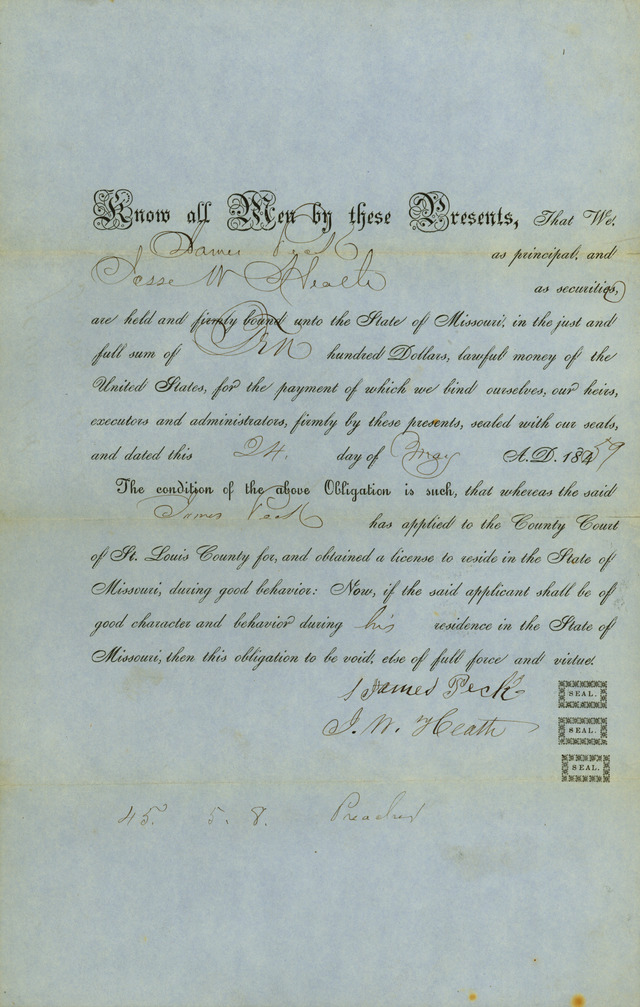 Know all Men by these Presents, That We.
James Peck as principal, and
Jesse W Heath as securities,
are held and firmly bound unto the State of Missouri, in the just and
full sum of Ten hundred Dollars, lawful money of the
United States, for the payment of which we bind ourselves, our heirs,
executors and administrators, firmly by these presents, sealed with our seals,
and dated this 24. day of May A. D. 1859
The condition of the above Obligation is such, that whereas the said
James Peck has applied to the County Court
of St. Louis County for, and obtained a license to reside in the State of
Missouri, during good behavior: Now, if the said applicant shall be of
good character and behavior during his residence in the State of
Missouri, then this obligation to be void, else of full force and virtue.
James Peck SEAL.
J. W. Heath SEAL.
SEAL.
45. 5. 8. Preacher